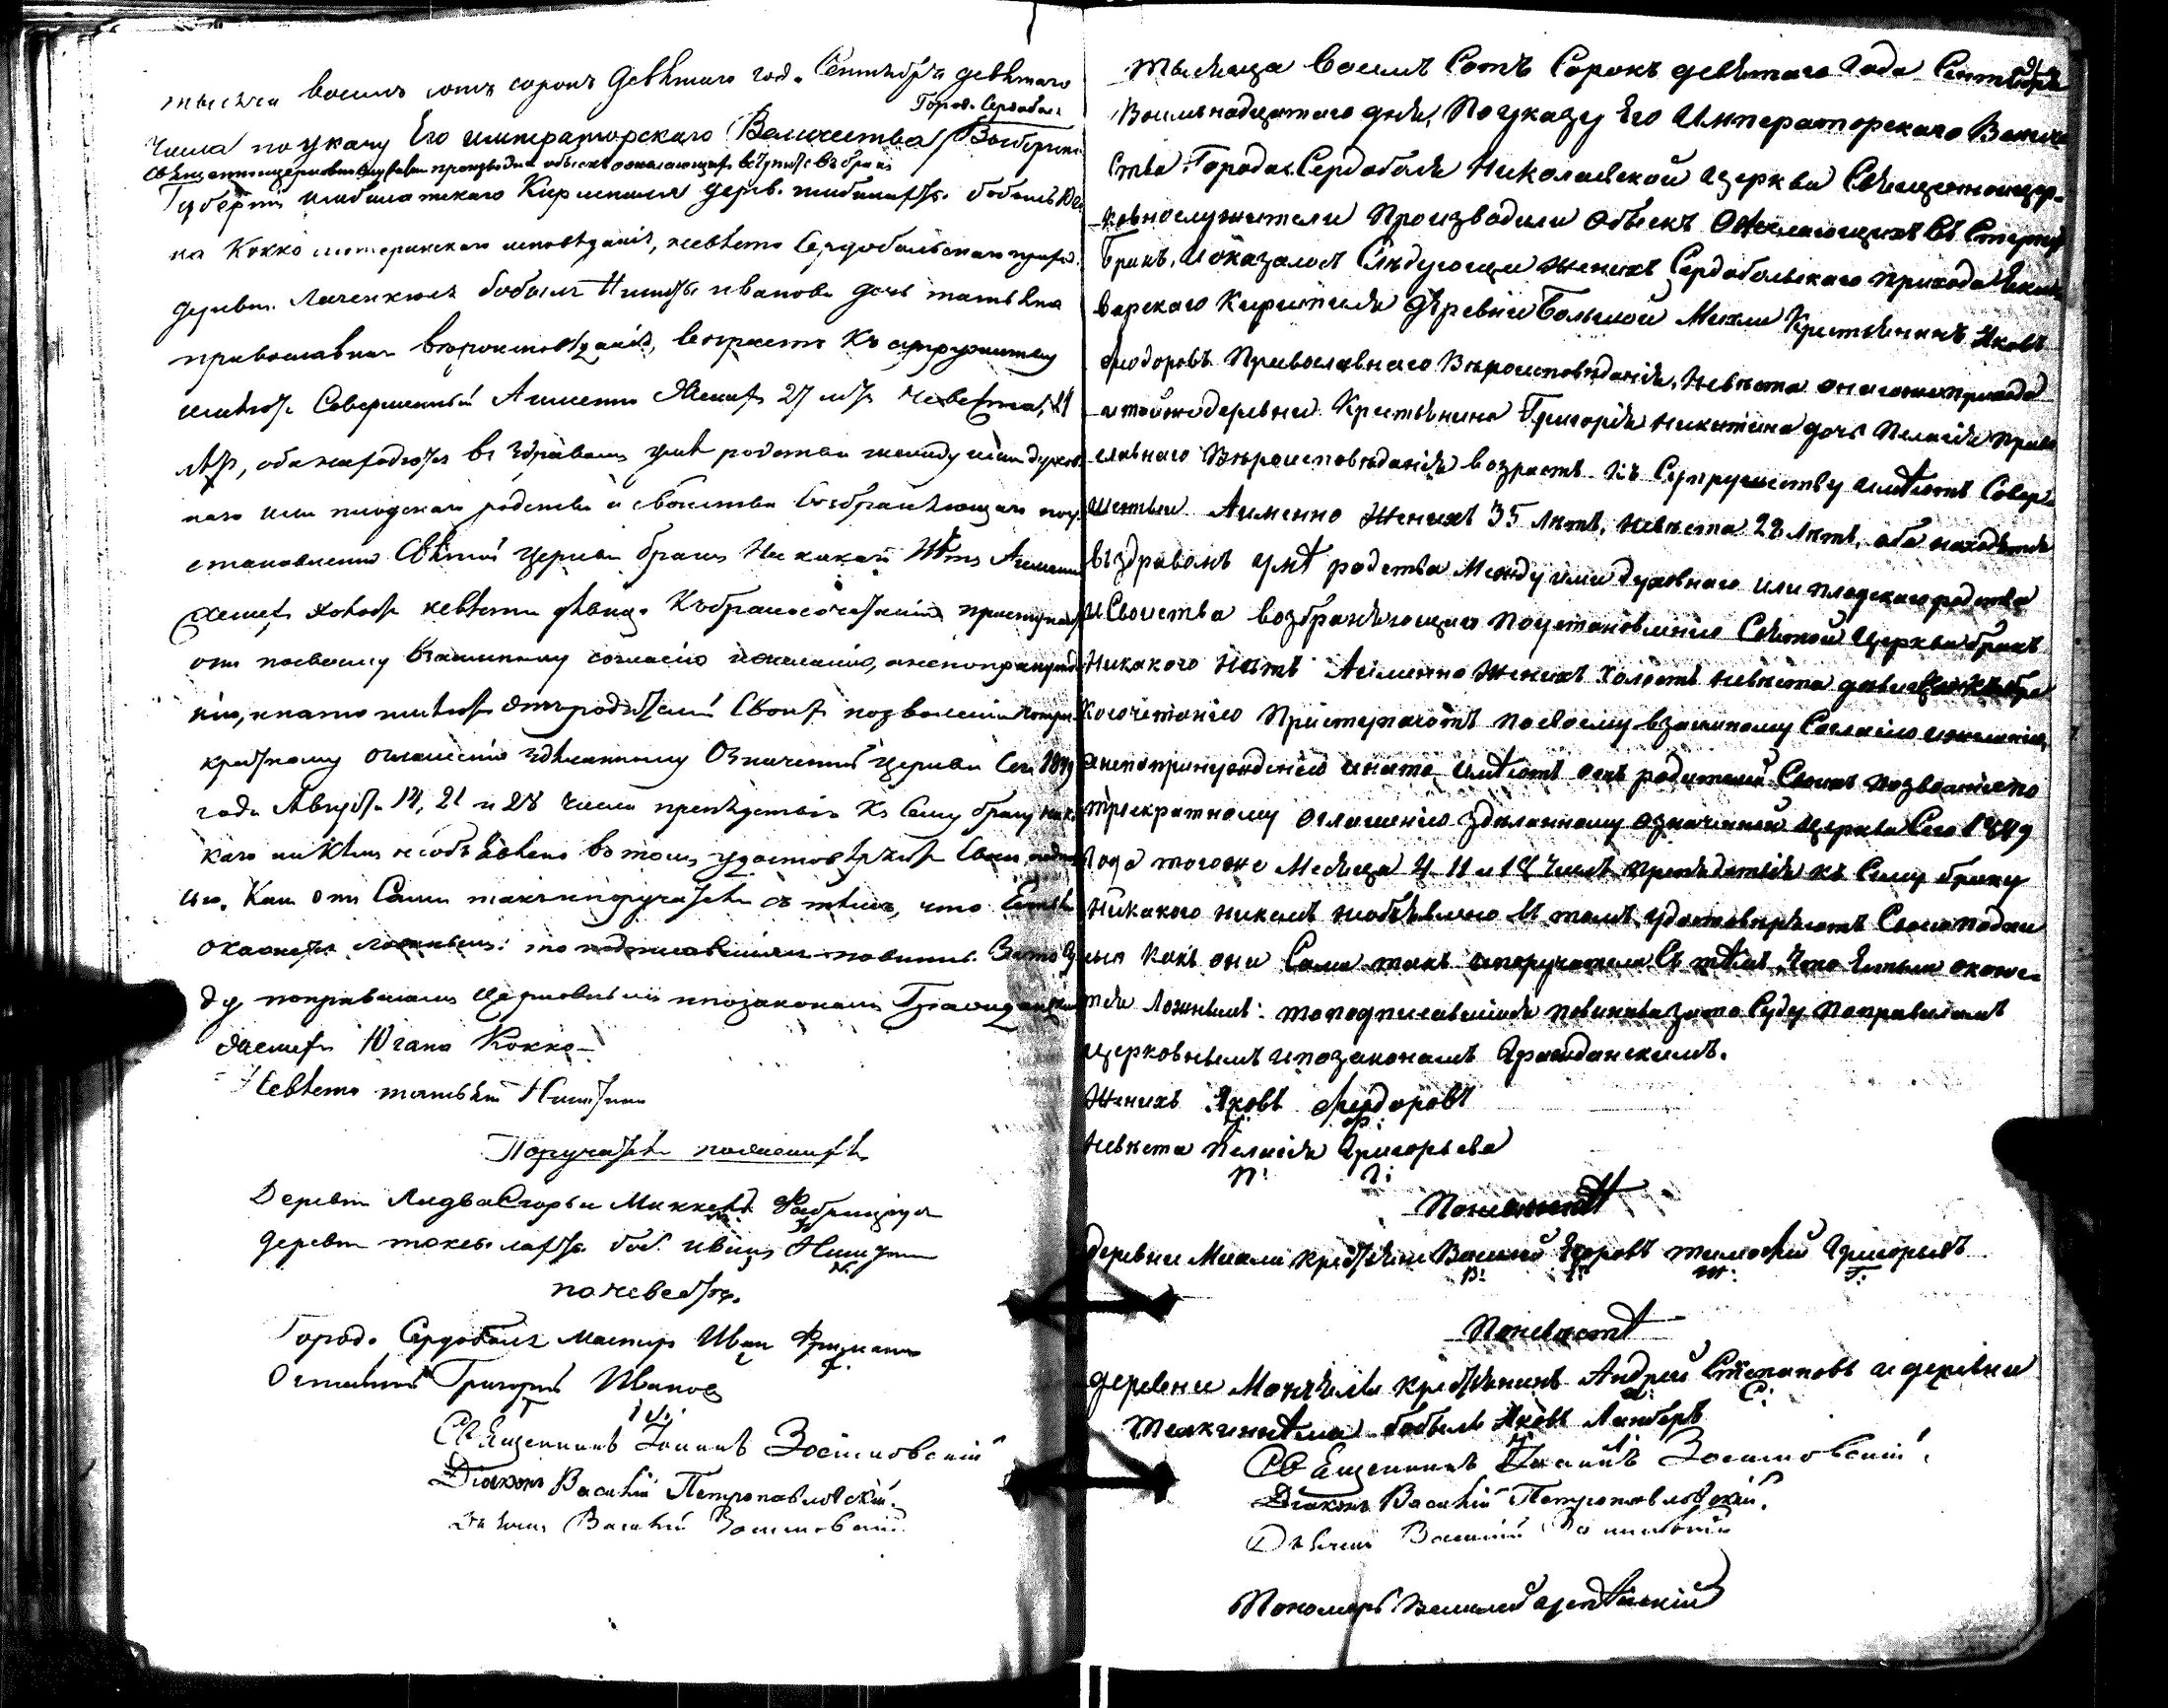 тысяча восемь сотъ сорокъ девятаго года Сентября девятаго
Города Сердоболя
числа по указу Его императорскаго Величества Выборгской
Священноцерковнослужители производили обыскъ о желающихъ вступить въ бракъ
Губерніи Кирхшпиля дерв. бобыль Юга
на Кокко лютеранскаго исповѣданія, невѣста Сердобольскаго прихода
деревни бобыля Никиты иванова дочь татьяна
православнаго вѣроисповѣданія, возрастъ Къ супружеству
имѣютъ Совершенный Аименно Женихъ 27 лѣтъ невеста, 24
лѣтъ, оба находятся въ здравомъ умѣ родства между ими духов
наго или плодскаго родства и свойства возбраняющаго по у
становленію Святой церкви бракъ Никакого Нѣтъ Аименно
женихъ холостъ невѣста дѣвица Къ бракосочетанію приступаютъ
они по своему взаимному согласію и желанію, а не по принужде
нію, и на то имѣютъ отъ родителей Своихъ позволеніе по трех
кратному оглашенію здѣланному Означенной церкви Сего 1849
года Августа 14, 21 и 28 числа препятствія Къ Сему браку ника
каго никѣмъ необъявлено въ томъ удостовѣряютъ Своею подпи
сью. Какъ они Сами такъ и поручатели съ тѣмъ, что Естьли
окажется ложнымъ: то подписавшіяся повинны За то Су
ду по правиламъ Церковнымъ и по законамъ Гражданскимъ
Женихъ Югана Кокко
Невѣста татьяна Никитина
Поручатели по женихѣ
Деревни Миккель
деревни боб. иванъ Никитинъ
по невестѣ.
Города Сердоболя Мастеръ Иванъ
Григорій Иванов
Священникъ Іоаннъ Зосимовскій
Діаконъ Василій Петропавловскій.
Дьячекъ Василій Зосимовскій.
тысяща Восемъ Сотъ Сорокъ девятаго Года Сентября
Восемьнадцатаго дня, По указу Его Императорскаго Величе
ства Города Сердоболя Николаевской Церкви Священноцер-
ковнослужители Производили Обыскъ О желающихъ Въ Ступить
бракъ, И оказалось Слѣдующее Женихъ Сердобольскаго прихода
варскаго Кирхшпиля деревни Большой Михли Крестьянинъ Яковъ
Феодоровъ Православнаго Вѣроисповѣданія, Невѣста онагоже прихода
и тойже деревни Крестьянина Григорія Никитина дочь Пелагія право
славнаго Вѣроисповѣданія возрастъ Къ Супружеству имѣютъ Совер-
шенный Аименно Женихъ 35 Лѣтъ, Невѣста 28 Лѣтъ, оба находятся
въ здравомъ умѣ родства Между ими духовнаго или плодскаго родства
и Свойства возбраняющаго По установленію Святой Церкви бракъ
Никакого Нѣтъ Аименно Женихъ Холостъ Невѣста девица Къ бра
косочетанію Приступаютъ по своему взаимному Согласію и желанію,
а не по принужденію и на то имѣютъ отъ родителей Своихъ позволеніе по
трекратному оглашенію здѣланному означенной Церкви Сего 1849
Года того же Месяца 4. 11 и 18 Числъ препядствія къ Сему браку
Никакого никемъ необъявлено въ томъ удостовѣряютъ Своею подпи
сью Какъ они Сами такъ и поручатели Съ тѣмъ, Что Естьли окаже-
тся Ложнымъ: то подписавшіяся повинны за то Суду По правиламъ
Церковнымъ и по законамъ Гражданскимъ.
Женихъ Яковъ Феодоровъ
Я: Ф:
Невѣста Пелагія Григорьева
П: Г:
По женихѣ
деревни Михли крестьяне Василій Егоровъ Тимофей Григорьевъ
В: Е: Т: Г:
По невѣстѣ
деревни крестьянинъ Андрей Степановъ и деревни
А: С:
бобыль Яковъ
Священникъ Іоаннъ Зосимовскій.
Діаконъ Василій Петропавловскій.
Дьячекъ Василій Зосимовскій
Пономарь Василей